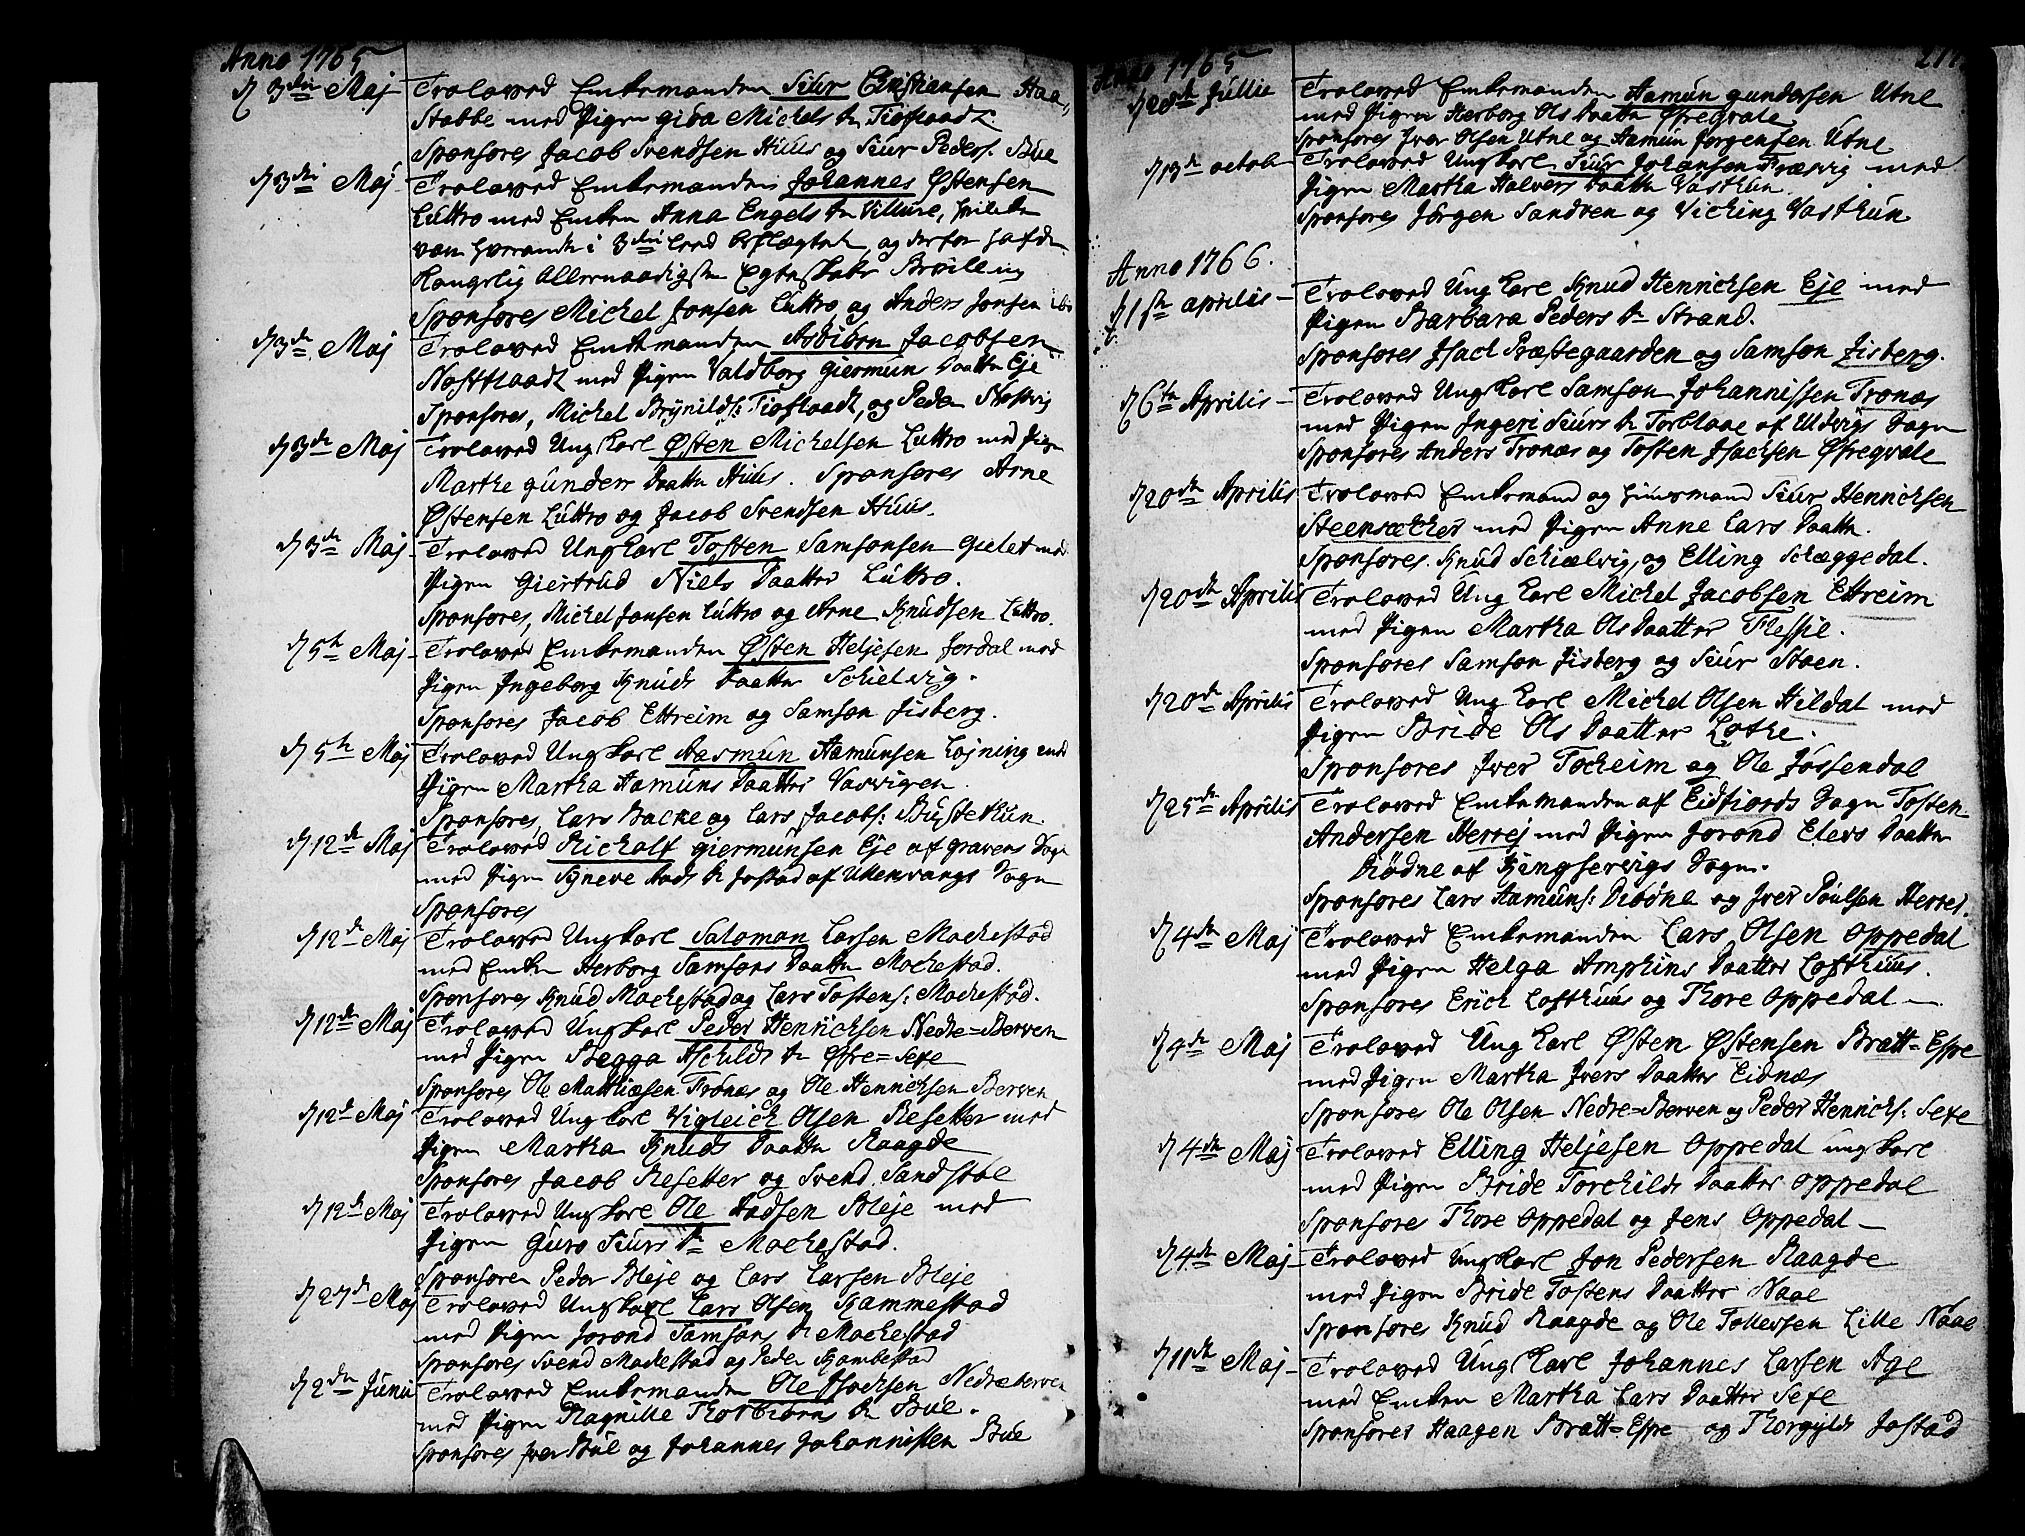 Anno 1765
d 3die Maj Trolowed Enkemanden Siur Christiansen Haa=
Stabbe med Pigen Giøa Michels dr Tioflaadt
Sponsores Jacob Svendsen Huus og Siur Peders. Bue
d 3die Maj Trolowed Enkemanden Johannes Østensen
Luttro med Enken Anna Engels dr Villure, hvilke
vare hverandre i 3die Leed beslægtede, og derfor hafde
Kongelig Allernaadigste Egteskabs Bevilling
Sponsores Michel Jonsen Luttro og Anders Jonsen ibd
d 3die Maj Trolowed Enkemanden Asbiörn Jacobsen
Nostflaadt med Pigen Valdborg Giermun Daatter Eje
Sponsores, Michel Brynilds: Tioflaadt, og Peder Nostvig
d 3die Maj Trolowed Ung Karl Østen Michelsen Luttro med Pigen
Marthe Gunders Daatter Huus. Sponsores Arne
Østensen Luttro og Jacob Svendsen Huus.
d 3die Maj Trolowed Ung Karl Tosten Samsonsen Qvelet med
Pigen Giertrud Niels Daatter Luttro.
Sponsores, Michel Jonsen Luttro og Arne Knudsen Luttro.
d 5te Maj Trolowed Enkemanden Østen Heljesen Jordal med
Pigen Ingeborg Knuds Daatter Schielvig.
Sponsores Jacob Ettreim og Samson Jisberg.
d 5te Maj Trolowed Ungkarl Aasmun Aamunsen Løjning med
Pigen Martha Aamuns Daatter Vasvigen.
Sponsores, Lars Backe og Lars Jacobs: Bustethun.
d 12te Maj Trolowed Richolf Giermunsen Eje af Gravens Sogn
med Pigen Synneve Aads dr Jostad af Ullenvangs Sogn
Sponsores
d 12te Maj Trolowed Ungkarl Salomon Larsen Mochestad
med Enken Herborg Samsons Daatter Mochestad.
Sponsores Knud Mochestad og Lars Tostens: Mochestad.
d 12te Maj Trolowed Ungkarl Peder Henrichsen Nedre=Berven
med Pigen Begga Aschilds dr Øfre=Sexe
Sponsores Ole Matthiæsen Tronæs og Ole Henrichsen Berven
d 12te Maj Trolowed Ung Karl Vigleich Olsen Resetter med
Pigen Martha Knuds Daatter Raagde
Sponsores Jacob Resetter og Svend Sandstøl
d 12te Maj Trolowed Ungkarl Ole Aadsen Bleje med
Pigen Guro Siurs dr Mochestad.
Sponsorer Peder Bleje og Lars Larsen Bleje
d 27de Maj Trolowed Ungkarl Lars Olsen Kammestad
med Pigen Jorond Samsons dr Mochestad
Sponsores Svend Mochestad og Peder Kambestad
d 2den Junii Trolowed Enkemanden Ole Isachsen Nedre Berven
med Pigen Ragnille Thorbiörns dr Bue.
Sponsores Iver Bue og Johannes Johannissen Bue
Anno 1765
d 28de Jullii Trolowed Enkemanden Aamun Gundersen Utne
med Pigen Herborg Ols Daatter Øfreqvale
Sponsores Iver Olsen Utne og Aamun Jørgensen Utne
d 13de octobr Trolowed Ungkarl Siur Johansen Trævig med
Pigen Martha Halvers Daatter Vasthun.
Sponsores Jörgen Sandven og Viching Vasthun
Anno 1766.
d 1ste aprilis Trolowed Ung Karl Knud Henrichsen Eje med
Pigen Barbara Peders dr Strand.
Sponsores Isach Præstegaarden og Samson Jisberg.
d 6te Aprilis Trolowed Ungkarl Samson Johannissen Tronæs
med Pigen Ingeri Siurs dr Torblaae af Ulvigs Sogn
Sponsores Anders Tronæs og Tosten Isachsen Øfreqvale
d 20de Aprilis Trolowed Enkemand og Huusmand Siur Henrichsen
Steensæther med Pigen Anne Lars Daatter.
Sponsores. Knud Schiælvig, og Elling Schæggedal.
d 20de Aprilis Trolowed Ung Karl Michel Jacobsen Ettreim
med Pigen Martha Ols Daatter Flessje.
Sponsores Samson Jisberg og Siur Staen.
d 20de Aprilis Trolowed Ung Karl Michel Olsen Hildal med
Pigen Bride Ols Daatter Lothe.
Sponsores Iver Tocheim og Ole Jøssendal
d 25de Aprilis Trolowed Enkemanden af Eidfiords Sogn Tosten
Andersen Herrej med Pigen Jorond Elevs Daatter
Diødne af Kingservigs Sogn.
Sponsores Lars Aamuns: Diödne og Iver Poulsen Herrej.
d 4de Maj Trolowed Enkemanden Lars Olsen Oppedal
med Pigen Helga Ampkins Daatter Lofthuus.
Sponsores Erich Lofthuus og Thore Oppedal
d 9de Maj Trolowed Ung Karl Østen Østensen Bratt=Espe
med Pigen Martha Ivers Daatter Eidnæs
Sponsores Ole Olsen Nedre=Berven og Peder Henrichs: Sexe
d 4de Maj Trolowed Elling Heljesen Oppedal ungkarl
med Pigen Bride Torchilds Daatter Oppedal
Sponsores Thore Oppedal og Jens Oppedal
d 4de Maj Trolowed Ungkarl Jon Pedersen Raagde
med Pigen Bride Tostens Daatter Naae
Sponsores Knud Raagde og Ole Tollevsen Lille Naae
d 11te Maj Trolowed Ung Karl Johannes Larsen Age
med Enken Martha Lars Daatter Sexe
Sponsores Haagen Bratt=Espe og Thorgyls Jostad